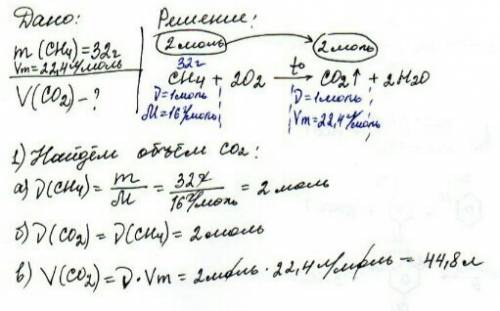 Дано:
m(CH4)=32г
Vm=22,4 л/моль
V(CO2) - ?
Решение:
2 моль → 2 моль
32г
CH4 + 2O2 t° → CO2↑ + 2H2O
ν=1моль ν=1моль
M=16 г/моль Vm=22,4 л/моль
1) Найдём объём CO2:
а) ν(CH4) = m/M = 32г/16 г/моль = 2 моль
б) ν(CO2) = ν(CH4) = 2моль
в) V(CO2) = ν · Vm = 2моль · 22,4 л/моль = 44,8 л